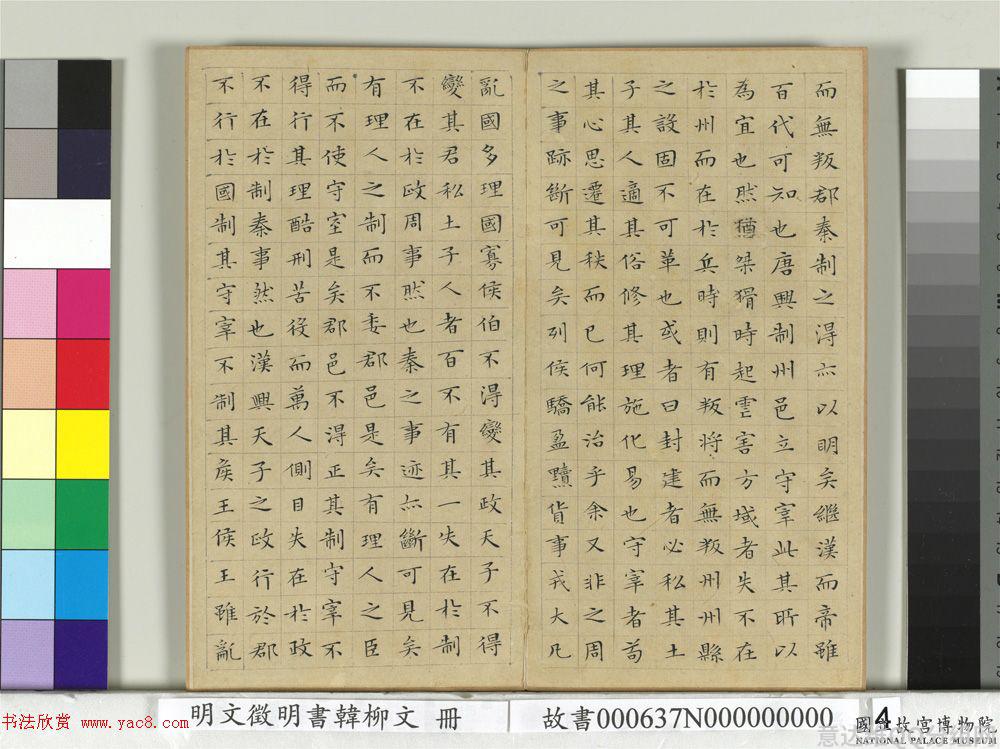 而無叛郡秦制之得亦以明矣繼漢而帝雖
百代可知也唐興制州邑立守宰此其所以
為宜也然猶桀猾時起虐害方域者失不在
於州而在於兵時則有叛將而無叛州州縣
之設固不可革也或者曰封建者必私其土
子其人適其俗修其理施化易也守宰者苟
其心思遷其秩而已何能治乎余又非之周
之事跡斷可見矣列侯驕盈黷貨事戎大凡
亂國多理國寡侯伯不得變其政天子不得
變其君私土子人者百不有其一失在於制
不在於政周事然也秦之事迹亦斷可見矣
有理人之制而不委郡邑是矣有理人之臣
而不使守宰是矣郡邑不得正其制守宰不
得行其理酷刑苦役而萬人側目失在於政
不在於制秦事然也漢興天子之政行於郡
不行於國制其守宰不制其侯王侯王雖亂
明文徵明書韓柳文 冊
故書000637N000000000
4
國立故宮博物院
NATIONAL PALACE MUSEUM
书法欣赏 www.yac8.com